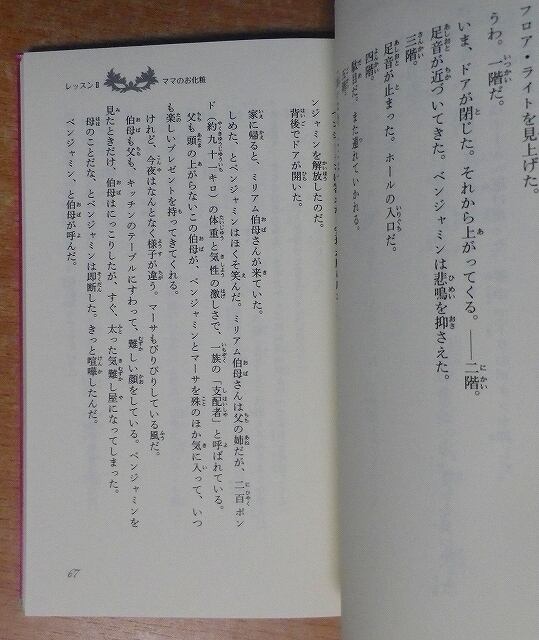 フロア・ライトを見上げた。
うわ。一階だ。
いま、ドアが閉じた。それから上がってくる。——二階。
足音が近づいてきた。ベンジャミンは悲鳴を抑さえた。
三階。
足音が止まった。ホールの入口だ。
四階。
駄目だ。また連れていかれる。
ンジャミンを解放したのだ。
背後でドアが開いた。
家に帰ると、ミリアム伯母さんが来ていた。
しめた、とベンジャミンはほくそ笑んだ。ミリアム伯母さんは父の姉だが、二百ポン
ド（約九十一キロ）の体重と気性の激しさで、一族の「支配者」と呼ばれている。
父も頭の上がらないこの伯母が、ベンジャミンとマーサを殊のほか気に入って、いつ
も楽しいプレゼントを持ってきてくれる。
けれど、今夜はなんとなく様子が違う。マーサもぴりぴりしている風だ。
伯母も父も、キッチンのテーブルにすわって、難しい顔をしている。ベンジャミンを
見たときだけ、伯母はにっこりしたが、すぐ、太った気難し屋になってしまった。
母のことだな、とベンジャミンは即断した。きっと喧嘩したんだ。
ベンジャミン、と伯母が呼んだ。
レッスンⅡ ママのお化粧
67